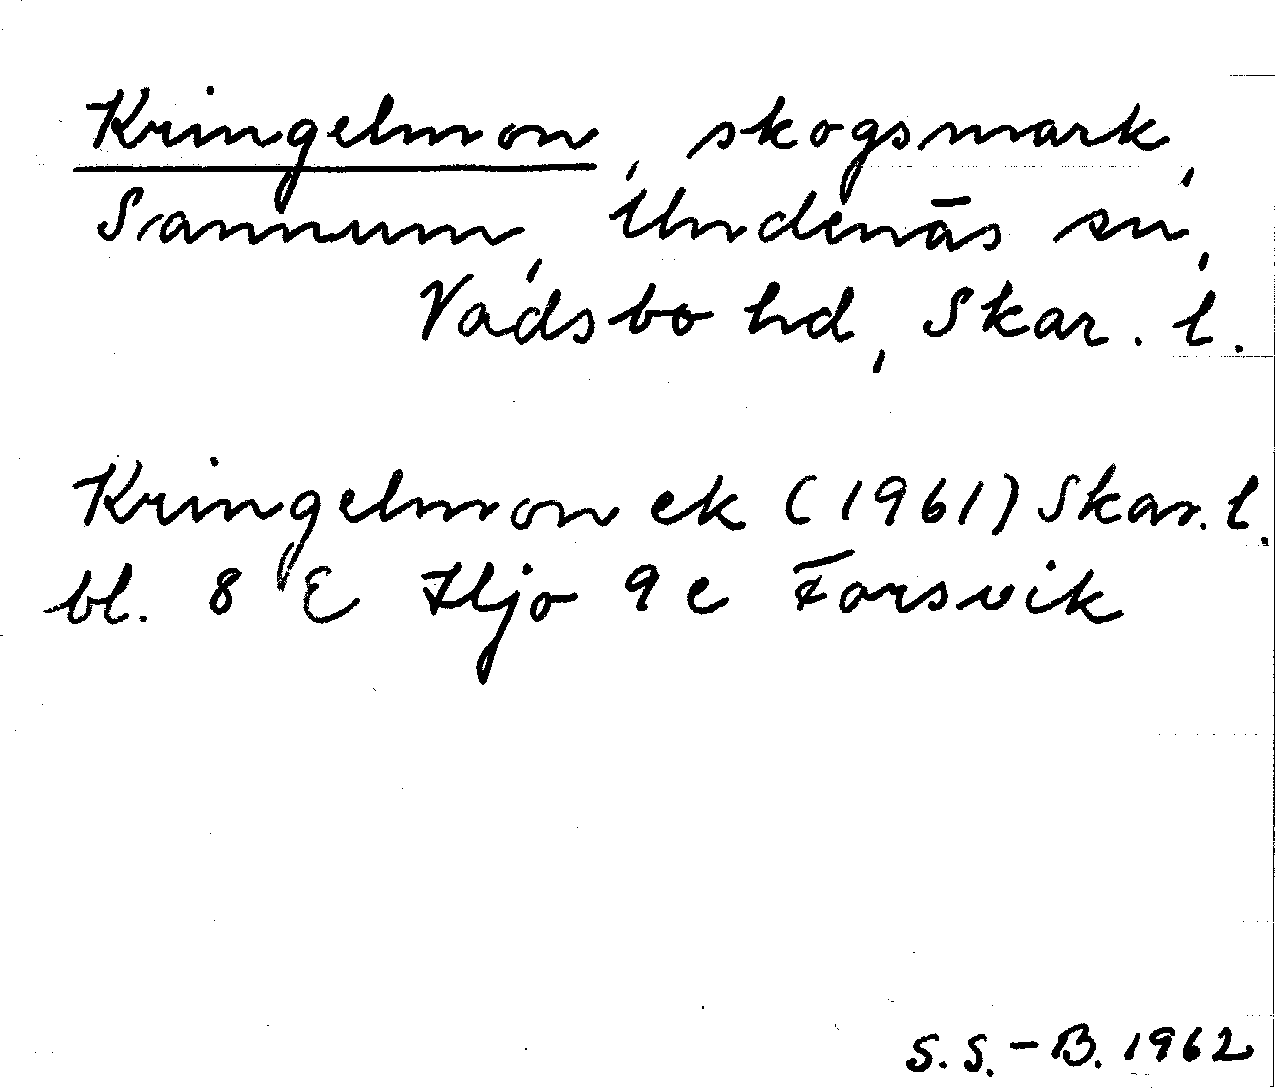 Kringelmon, skogsmark,
Sannum, Undenäs sn,
Vadsbo hd, Skar. l.
Kringelmon ek (1961) Skar. l.
bl. 8 E Hjo 9 e Forsvik
S.S.-B. 1962